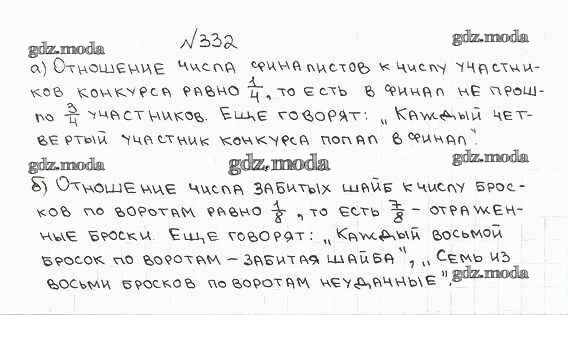 №332
gdz.moda gdz.moda
а) Отношение числа финалистов к числу участни-
ков конкурса равно 1/4, то есть в финал не прош-
ло 3/4 участников. Еще говорят: „Каждый чет-
вертый участник конкурса попал в финал".
gdz.moda gdz.moda gdz.moda
б) Отношение числа забитых шайб к числу брос-
ков по воротам равно 1/8, то есть 7/8 - отражен-
ные броски. Еще говорят: „Каждый восьмой
бросок по воротам - забитая шайба", „Семь из
восьми бросков по воротам неудачные".
gdz.moda gdz.moda